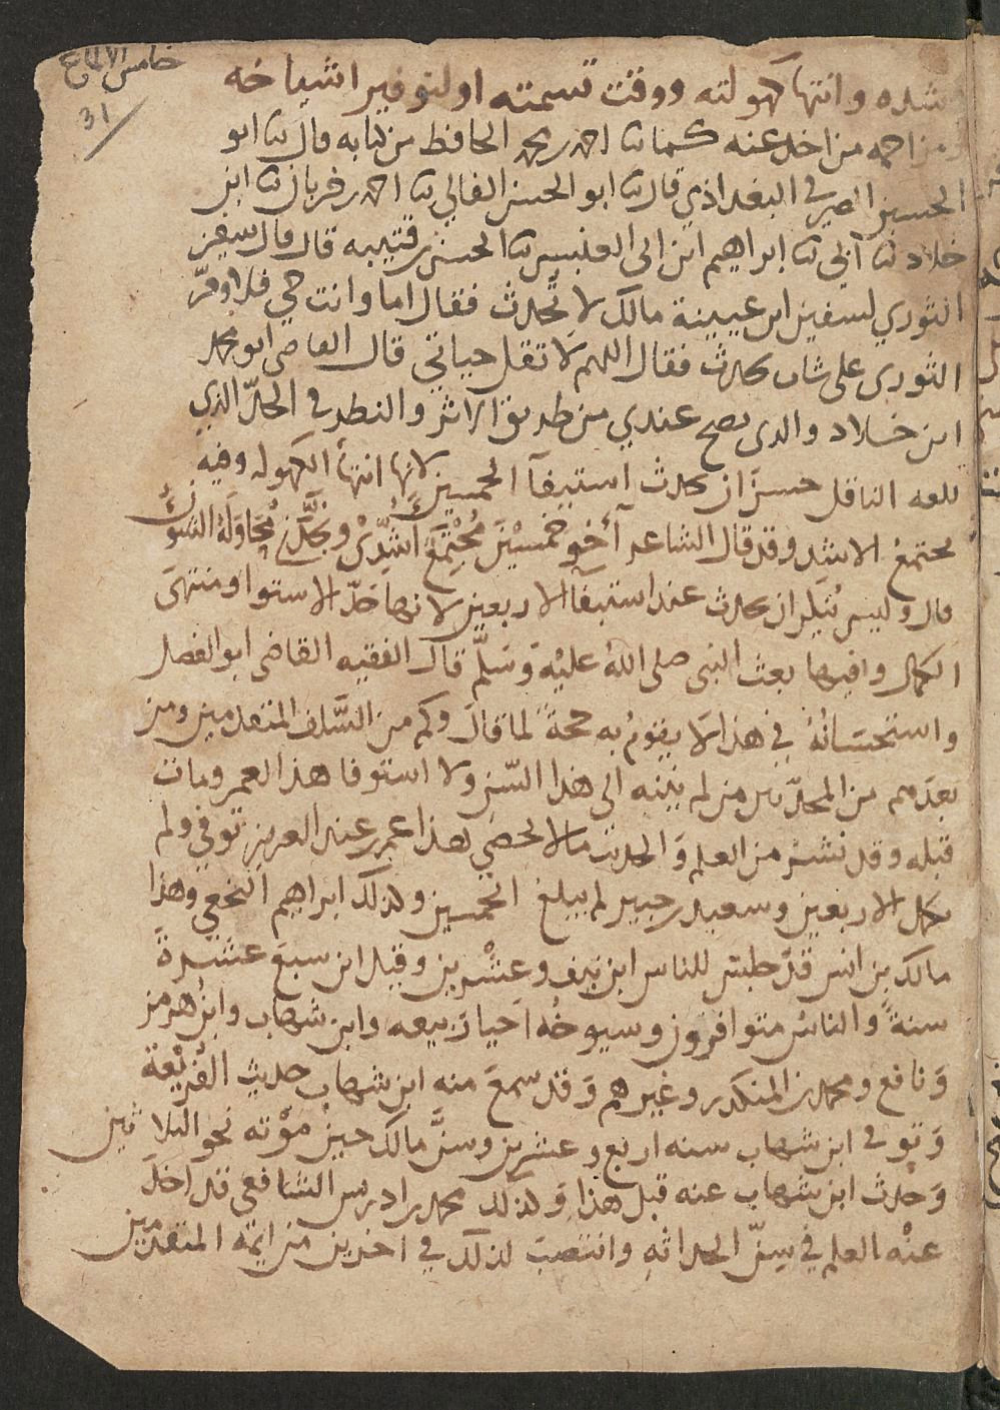 خامس الالماع
31
شده وانتها كهولته ووقت قسمته او لتوفير اشياخه
ومزاحمه من اخذ عنه كما نا احمد بن محمد الحافظ من كتابه قال نا ابو
الحسين الصيرفي البغداذي قال نا ابو الحسن الفالي نا احمد بن خربان نا ابن
خلاد نا ابي نا ابراهيم ابن ابي العنبس نا الحسن بن قتيبه قال قال سفين
الثوري لسفين ابن عيينة مالك لا تُحدث فقال اما وانت حي فلا ومرّ
الثوري على شاب يحدث فقال اللهم لا تقل حياتي قال القاضي ابو محمد
ابن خلاد والذي يصح عندي من طريق الاثر والنظر في الحدّ الذي
بلغه الناقل حسن ان يحدث استيفآ الخمسين لانها انتهآ الكهوله وفيه
مجتمع الاشد وقد قال الشاعر أخو خَمْسِيْنَ مُجْتَمِعٌ أَشُدِّيْ ونَجَّذَنِي مُحَاوَلَةُ الشؤن
قال وليس يُنكر ان يحدث عند استيفآ الاربعين لانها حَدّ الاستوا ومنتهَى
الكمال وفيها بعث النبي صلى اللهُ عليْه وَسَلَّم قال الفقيه القاضي ابو الفضل
واستحسَانُهُ في هذا لَا يقومُ به حجةً لما قالَ وكم من السَّلف المتقدمين ومن
بعدهم من المحدّثين من لم ينته الى هذا السّن ولا استوفا هذا العمر ومات
قبله وقد نشر من العلم وَالحديث ما لا يحصي هذا عمر بن عبد العزيز توفي ولم
يكمل الاربعين وسعيد بن جبير لم يبلغ الخمسين وكذلك ابراهيم النخعي وهذا
مالك بن انس قدْ جلس للناس ابن نيف وعشْرين وقيل ابن سبع عَشَرةَ
سنةً والناسُ متوافرُون وشيوخُه اَحيا ربيعه وابن شهاب وابنُ هرمز
وَنافع ومحمد بن المنكدر وغيرهم وَقد سمعَ منه ابن شهاب حديث الفُرَيْعة
وَتوفي ابن شهاب سنه اربع وعشرين وسنُّ مالك حينَ موْته نحو الثلاثين
وَحدث ابن شهاب عنه قبل هذا وَكذلك محمد بن ادريس الشافعي قد اخذ
عنْه العلم في سِنّ الحداثهِ وانتصبَ لذلك في اخرين من ايمّه المتقدمين